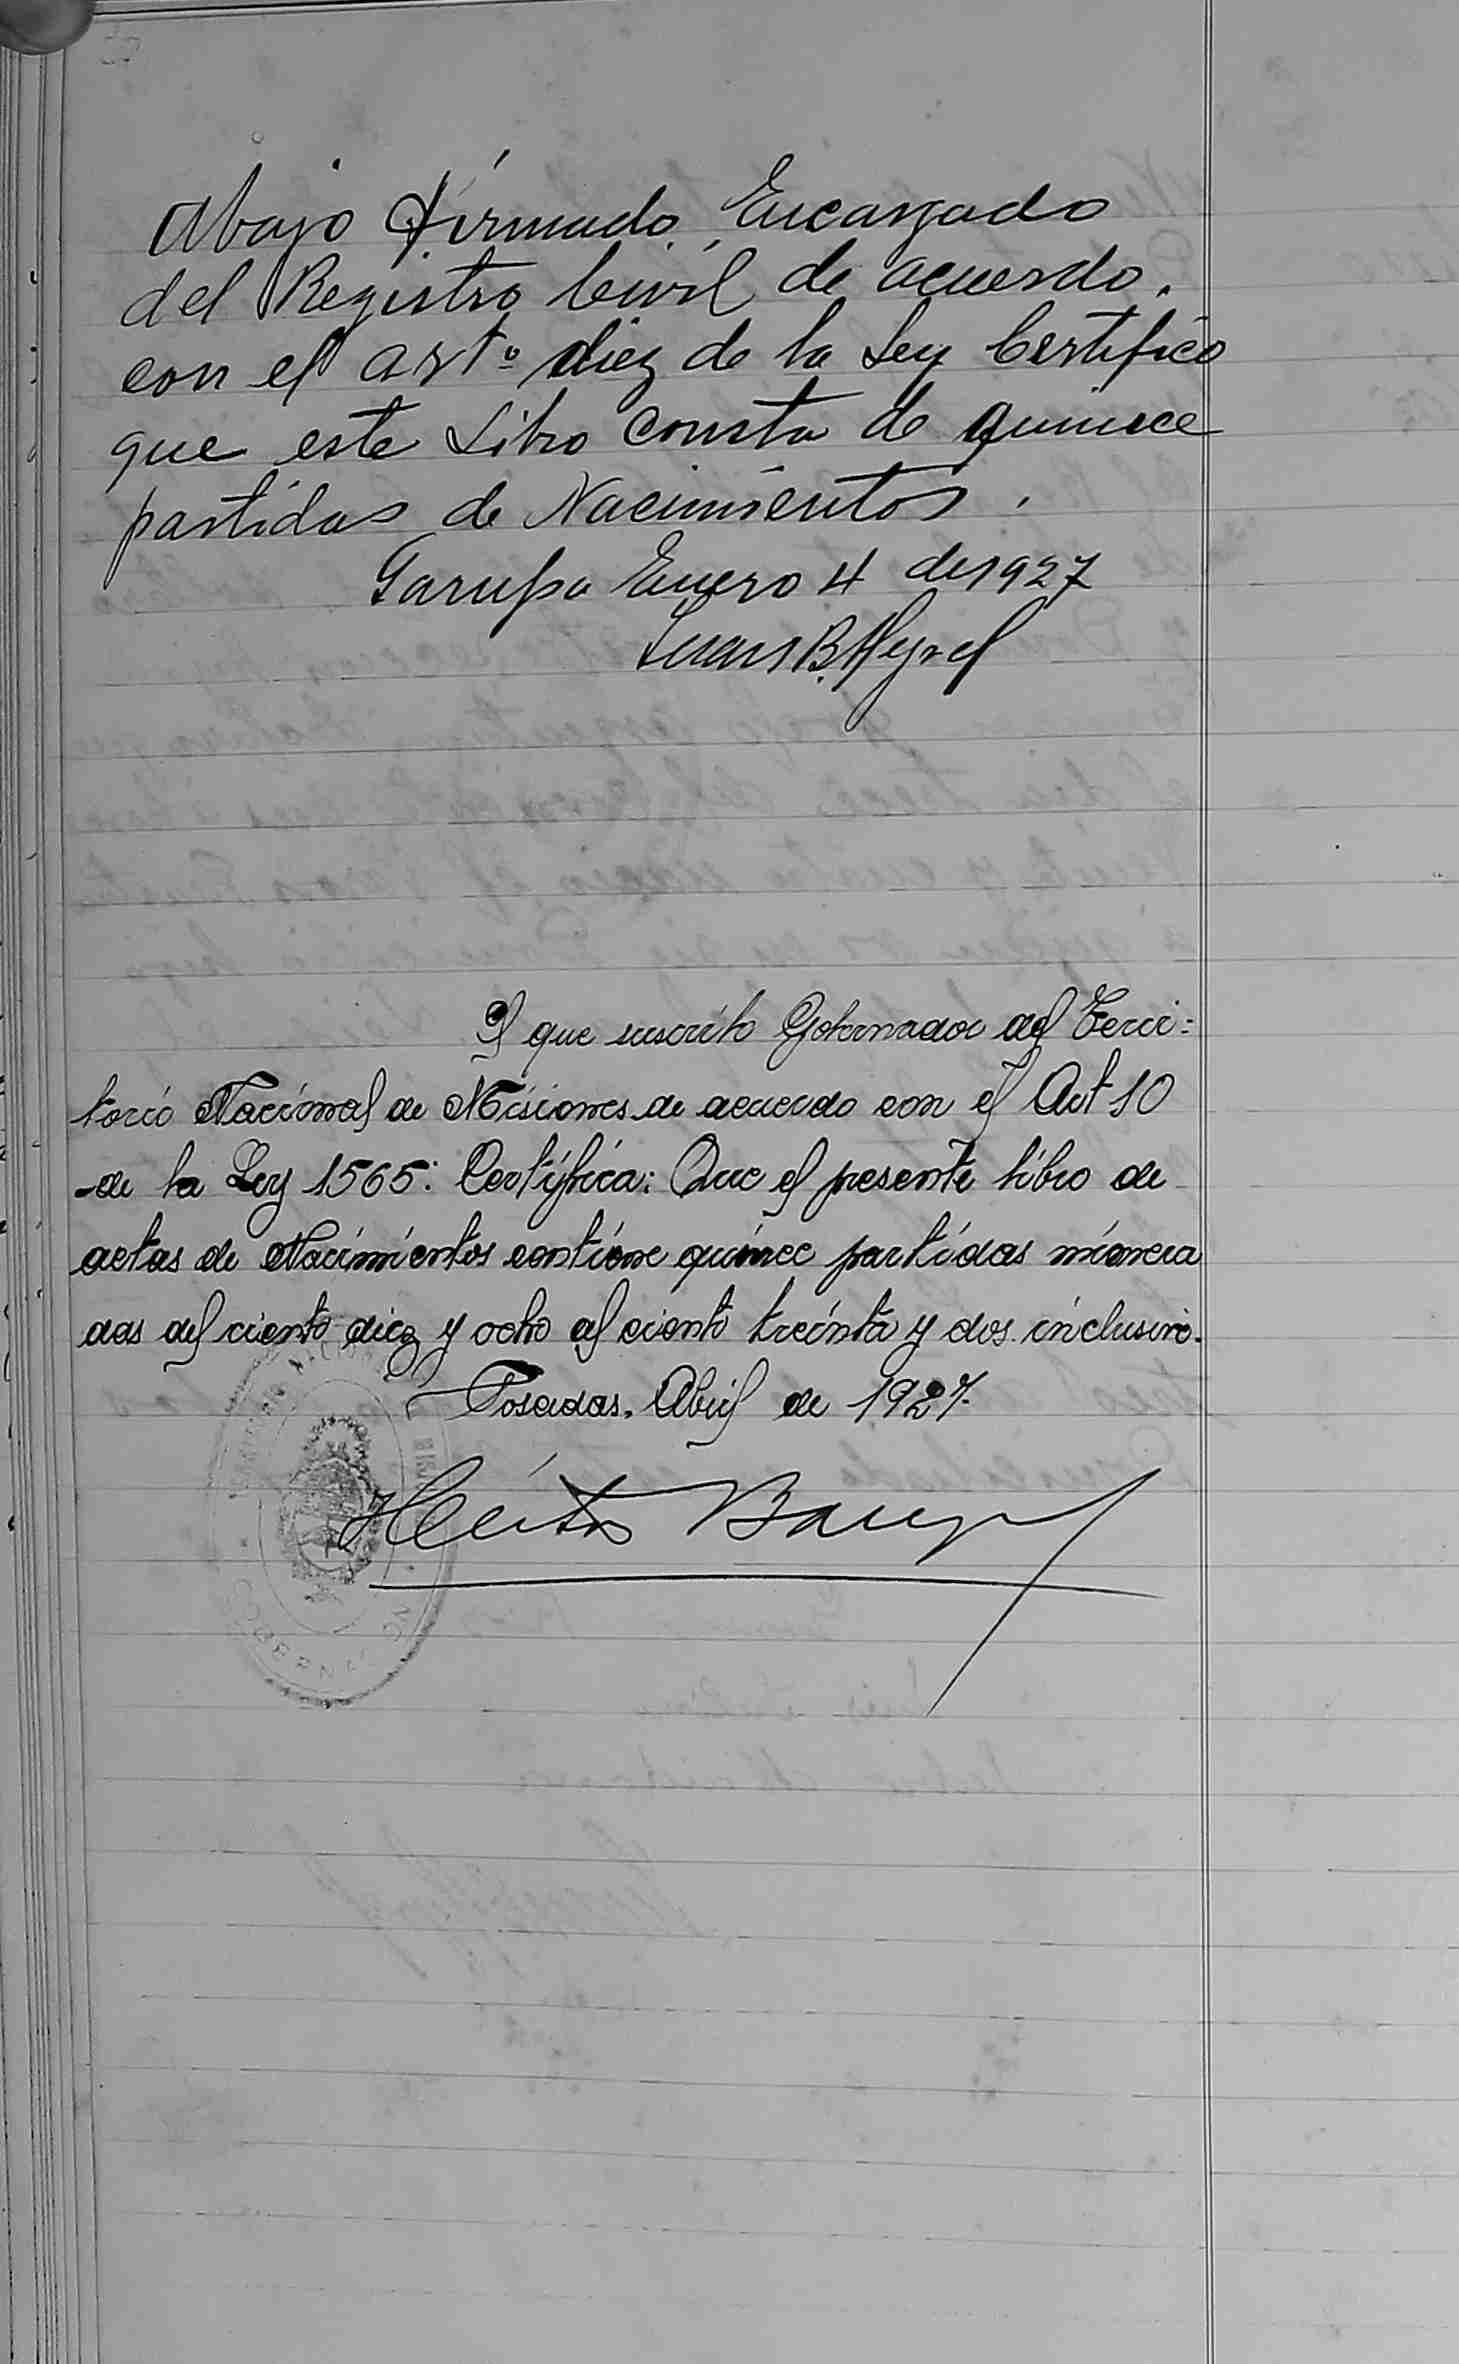 Abajo firmado, Encargado
del Registro Civil de acuerdo.
con el artº diez de la Ley Certifico
que este Libro consta de quince
partidas de Nacimientos.
Garupa Enero 4 de 1927
Juan B.
El que suscrito Gobernador del Terri=
torio Nacional de Misiones de acuerdo con el Art 10
de la Ley 1565: Certifica: Que el presente libro de
actas de Nacimientos contiene quince partidas númera
das del ciento diez y ocho al ciento treinta y dos inclusive.
Posadas, Abril de 1927.
Héctor Barreyro
GOBERNACION